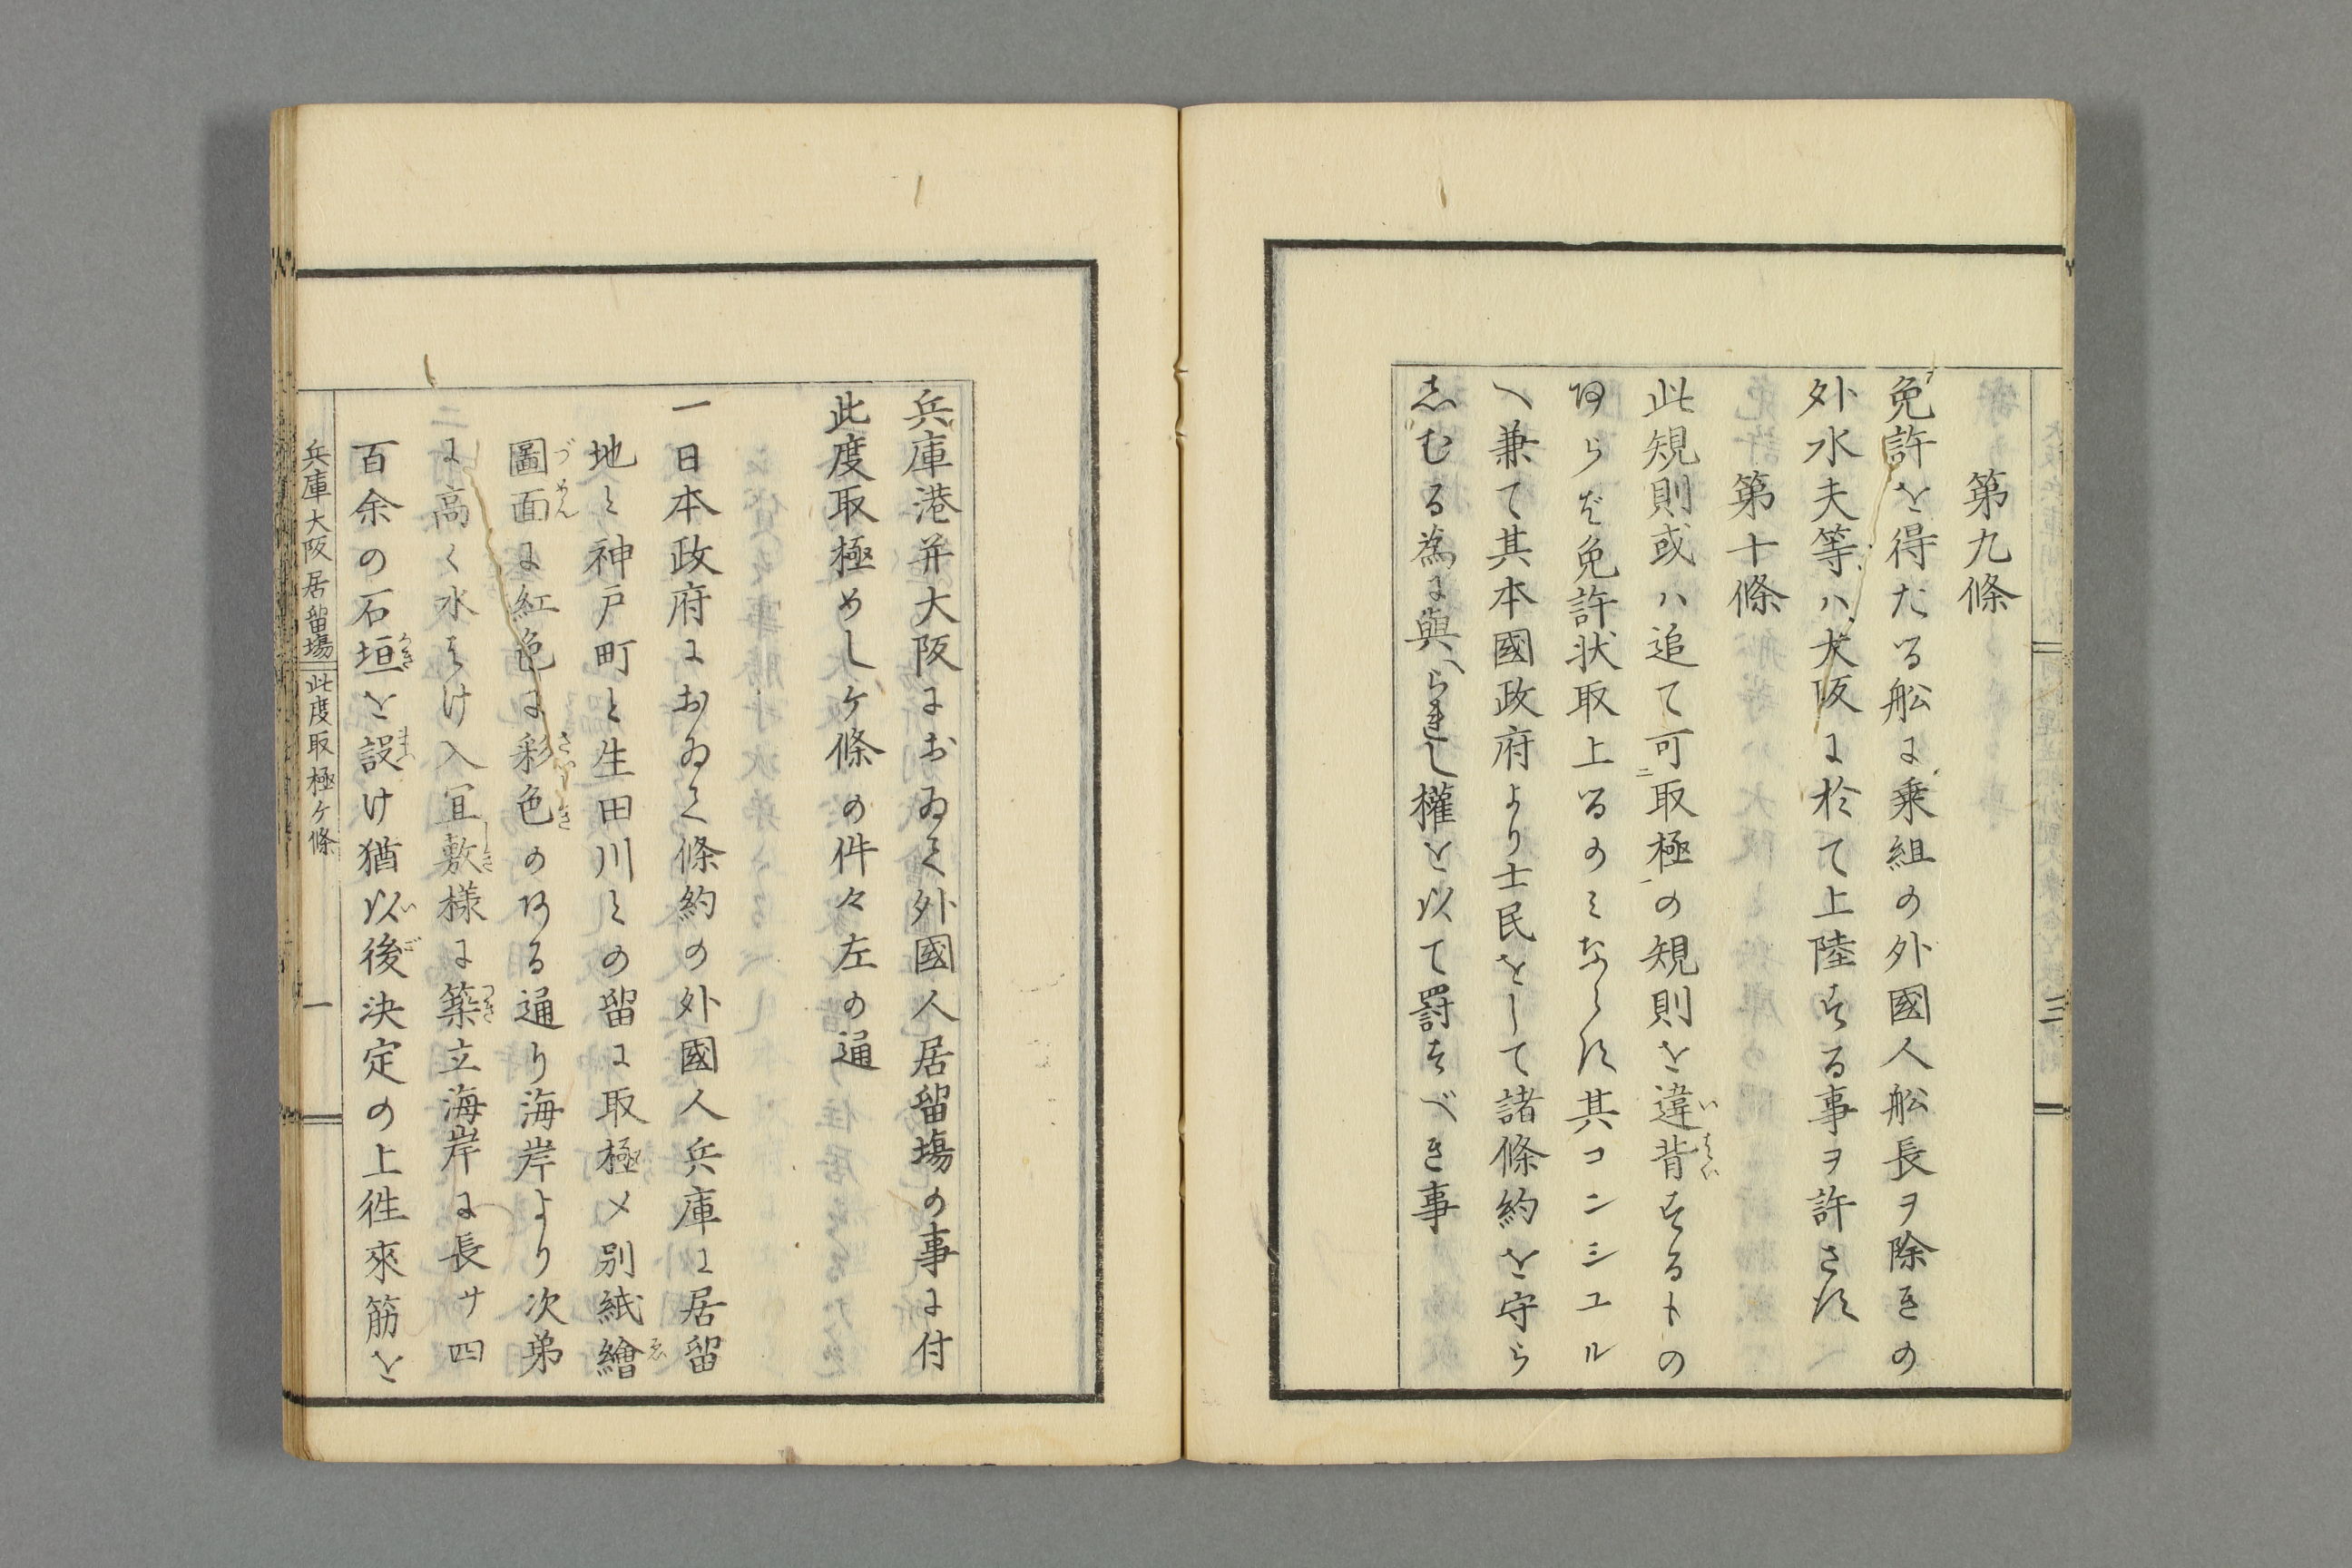 第九條
免許を得たる舩に乗組の外國人舩長ヲ除きの
外水夫等ハ大阪に於て上陸する事ヲ許さす
第十條
此規則或ハ追て可取極の規則を違背するトの
あらば免許状取上るのミならす其コンシユル
へ兼て其本國政府より士民をして諸條約を守ら
しむる為に與へられし權を以て罰すべき事
兵庫港并大阪におゐて外國人居留塲の事に付
此度取極めしケ條の件々左の通
一日本政府におゐて條約の外國人兵庫に居留
地を神戸町と生田川との留に取極メ別紙繪
圖面に紅色に彩色のある通り海岸より次弟
に高く水はけ入宜敷様に築立海岸に長サ四
百余の石垣を設け猶以後決定の上徃來筋を
兵庫大阪居留塲 此度取極ケ條 一